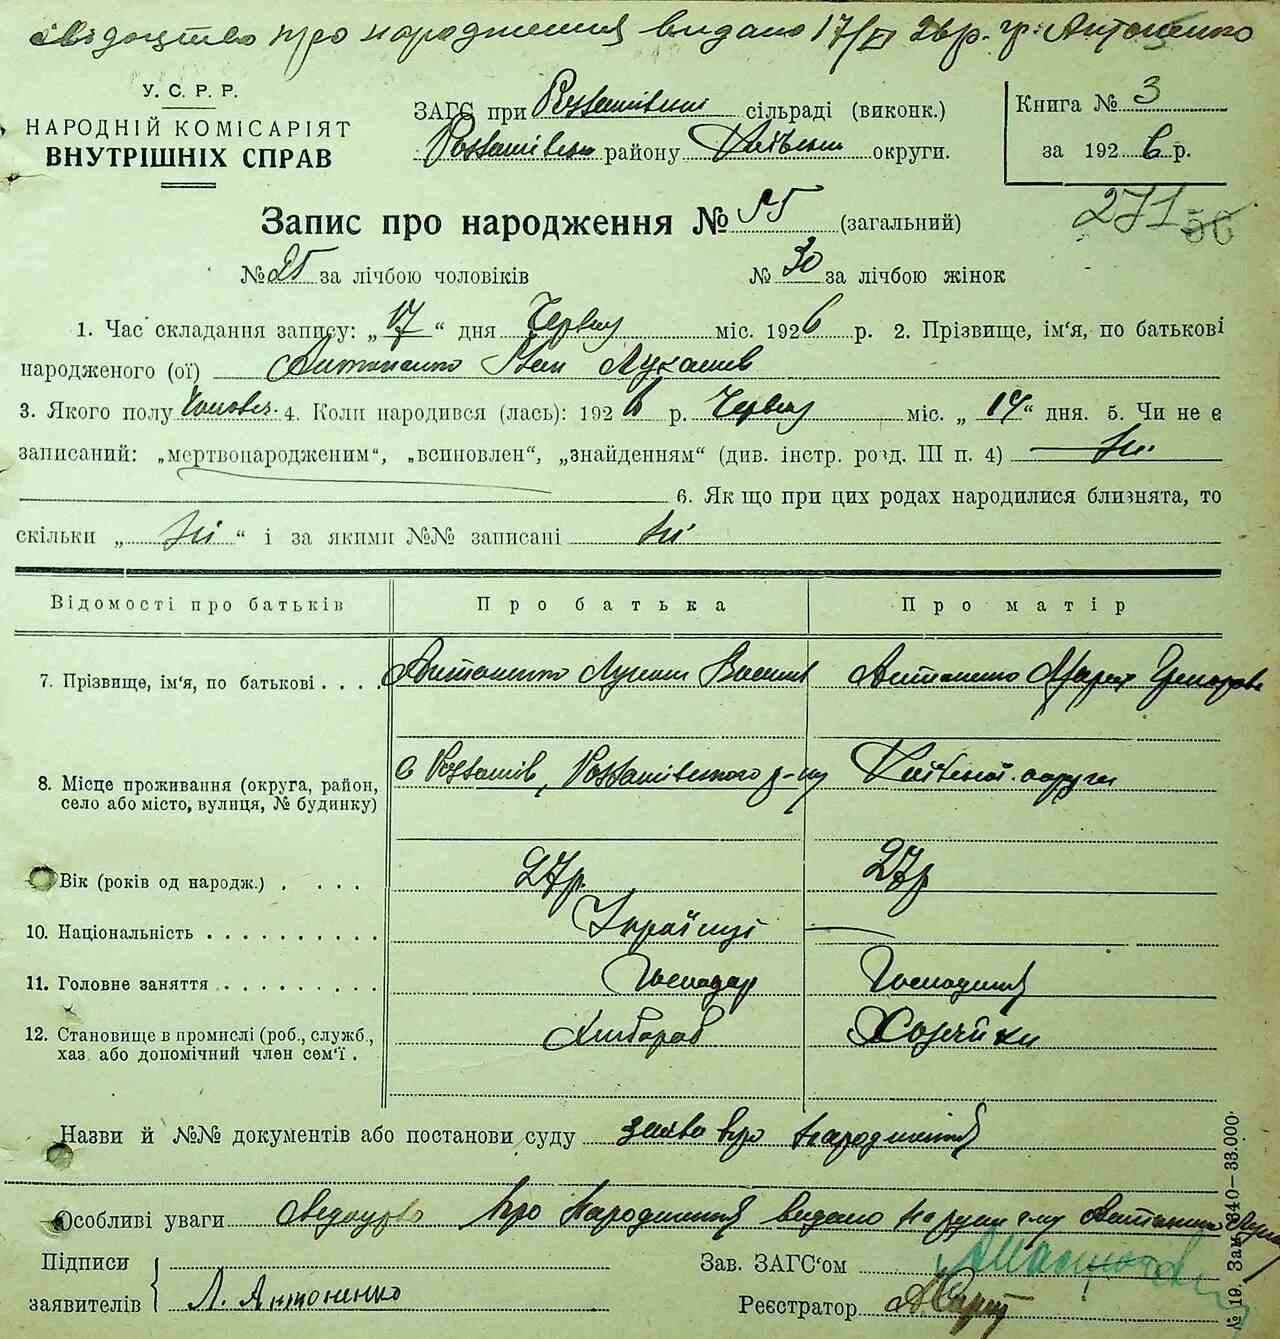 свідоцтво про народження видано 17/VI 26р. гр. Антоненко
У. С. Р. Р.
НАРОДНІЙ КОМІСАРІЯТ
ВНУТРІШНІХ СПРАВ
ЗАГС при сільраді (виконк.)
району округи.
Книга № 3
за 1926 р.
Запис про народження № 55 (загальний)
271 56
№ 25 за лічбою чоловіків № 30 за лічбою жінок
1. Час складання запису: „17“ дня Червня міс. 1926 р. 2. Прізвище, ім'я, по батькові
народженого (ої) Антоненко Іван Лукашів
3. Якого полу Чоловіч. 4. Коли народився (лась): 1926 р. Червня міс. „14“ дня. 5. Чи не є
записаний: „мертвонародженим“, „всиновлен“, „знайденням“ (див. інстр. розд. III п. 4) Ні
6. Як що при цих родах народилися близнята, то
скільки „ Ні “ і за якими №№ записані Ні
Відомості про батьків Про батька Про матір
7. Прізвище, ім'я, по батькові . . . . Антоненко Лукаш Василів Антоненко Марія Григорова
8. Місце проживання (округа, район,
село або місто, вулиця, № будинку)
р-ну Київської округи
Вік (років од народж.) . . . . 27р. 27р
10. Національність . . . . . . . . . . Українці
11. Головне заняття . . . . . . . . . Господар Господиня
12. Становище в промислі (роб., служб.,
хаз. або допомічний член сем'ї .
Хлібороб Хозяйка
Назви й №№ документів або постанови суду заява про народження
Особливі уваги Свідоцтво про Народження видано на руки гр. Антоненко
Підписи
заявителів Л. Антоненко
Зав. ЗАГС'ом
Реєстратор
№ 19. Зам. 340—33.000.